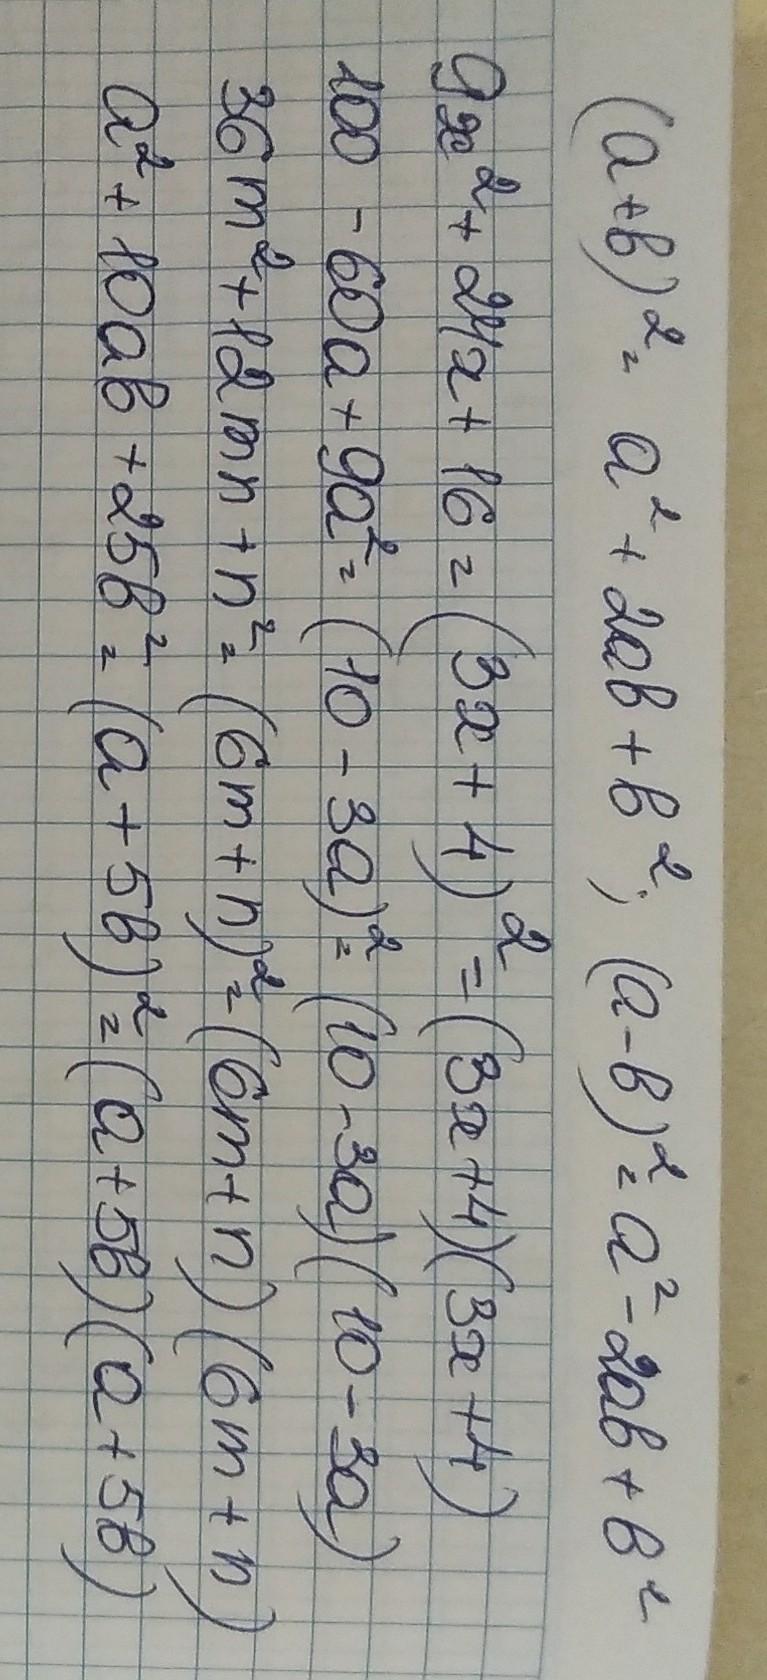 (a+b)² = a² + 2ab + b²; (a-b)² = a² - 2ab + b²
9x² + 24x + 16 = (3x + 4)² = (3x+4)(3x+4)
100 - 60a + 9a² = (10 - 3a)² = (10 - 3a)(10 - 3a)
36m² + 12mn + n² = (6m + n)² = (6m + n)(6m + n)
a² + 10ab + 25b² = (a + 5b)² = (a + 5b)(a + 5b)